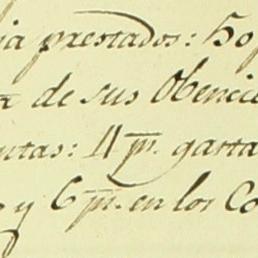 ia prestados: 50 p
a de sus Obencio
ntas: 4 p.^s gasta
y 6 p.^s en los Co